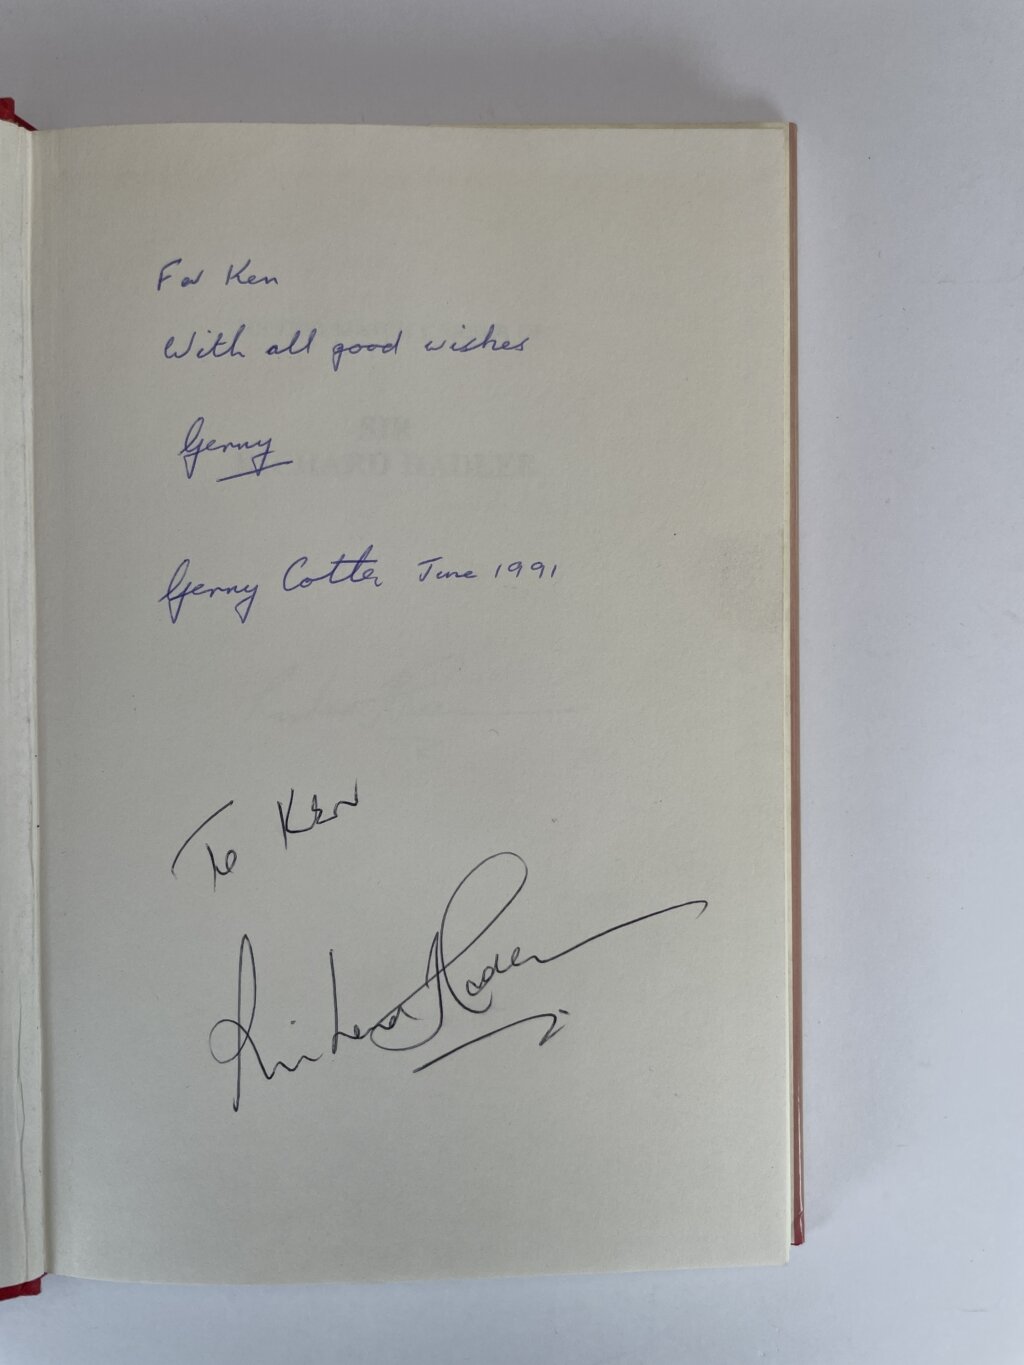 For Ken
With all good wishes
Gerry
Gerry Cotter June 1991
SIR
RICHARD HADLEE
To Ken
Richard Hadlee